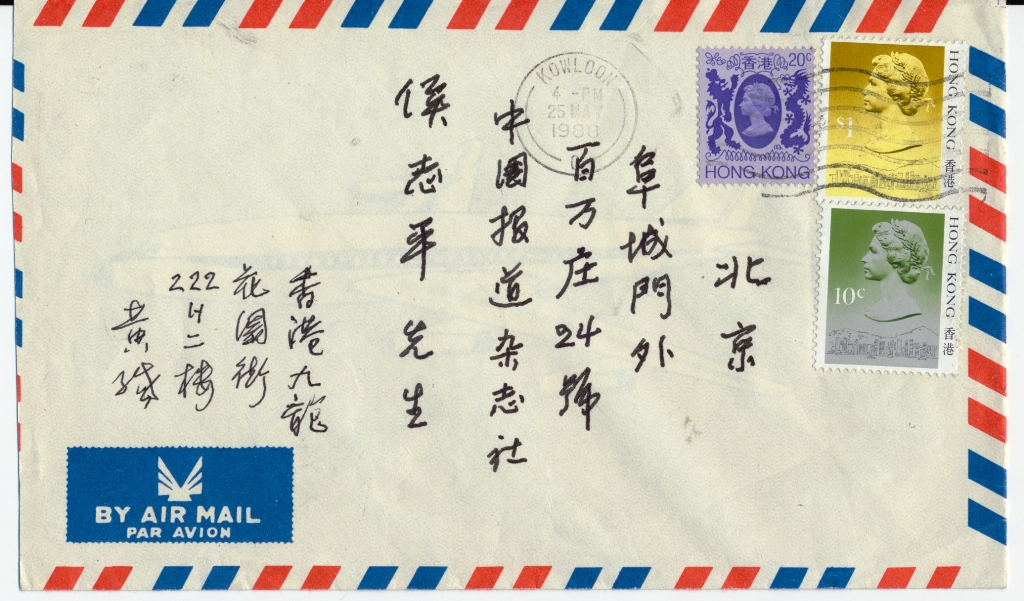 北京
阜城門外
百万庄24號
中國报道杂志社
侯志平先生
香港九龍
花園街
222
二楼
黄
KOWLOON
4 - PM
25 MAY
1988
香港 20c
HONG KONG
$1
HONG KONG 香港
10c
HONG KONG 香港
BY AIR MAIL
PAR AVION